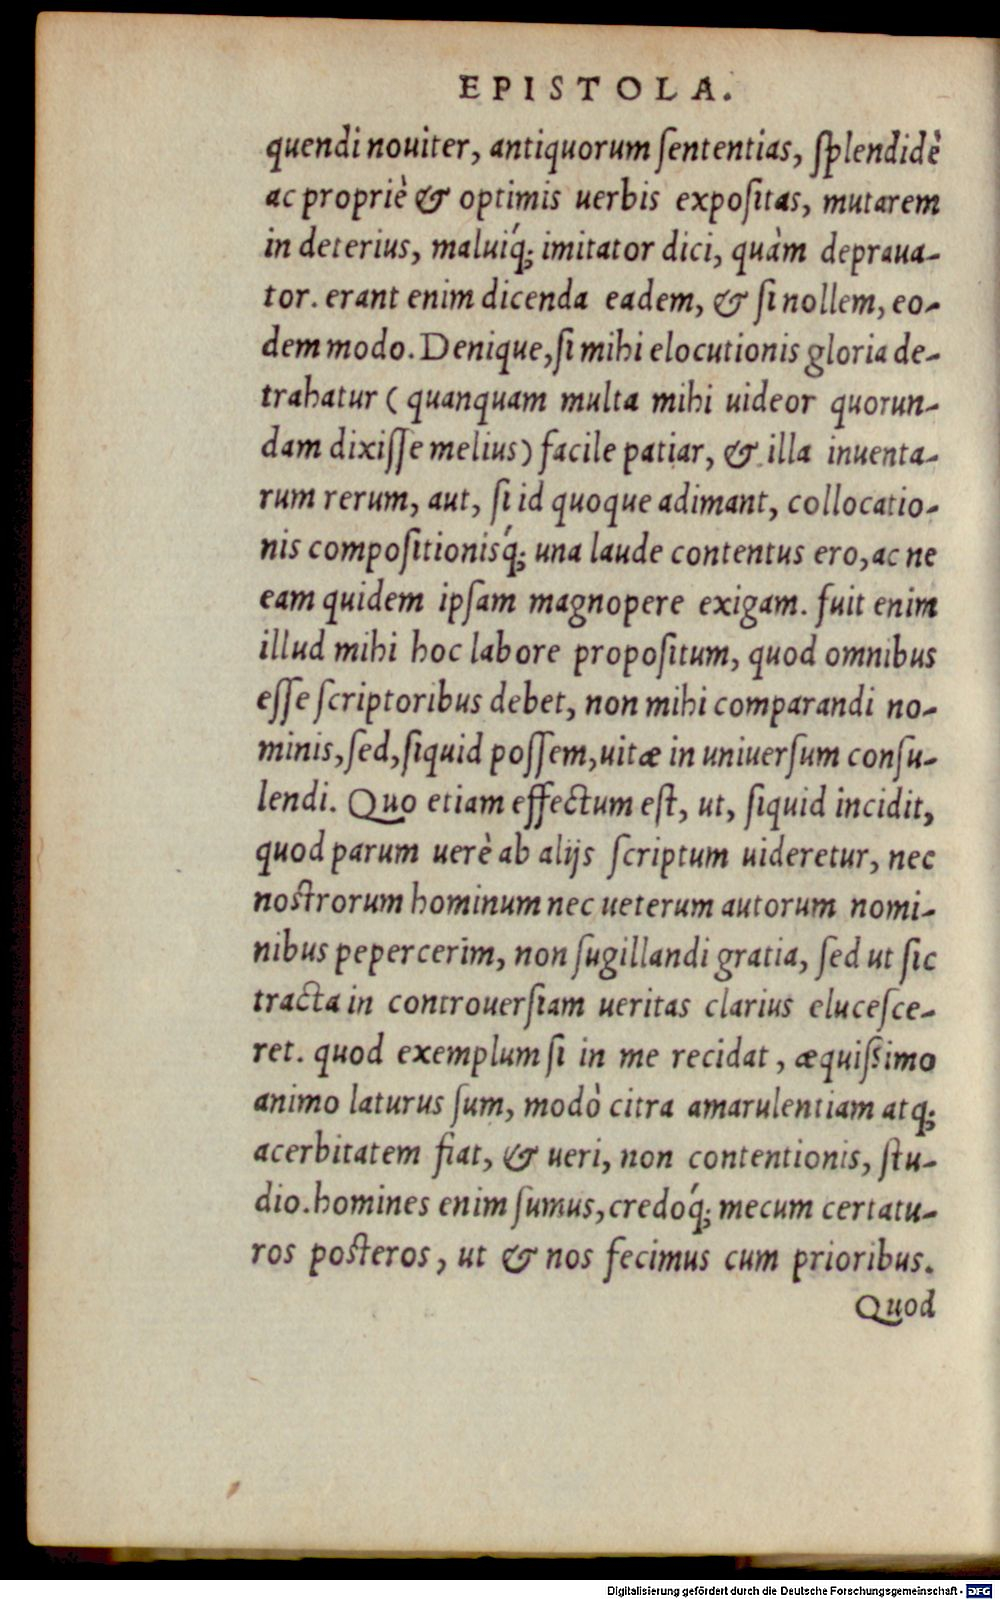 EPISTOLA.
quendi nouiter, antiquorum ſententias, ſplendidè
ac propriè & optimis uerbis expoſitas, mutarem
in deterius, maluiq́; imitator dici, quàm deprauа-
tor. erant enim dicenda eadem, & ſi nollem, eo-
dem modo. Denique, ſi mihi elocutionis gloria de-
trahatur ( quanquam multa mihi uideor quorun-
dam dixiſſe melius) facile patiar, & illa inuenta-
rum rerum, aut, ſi id quoque adimant, collocatio-
nis compoſitionisq́; una laude contentus ero, ac ne
eam quidem ipſam magnopere exigam. fuit enim
illud mihi hoc labore propoſitum, quod omnibus
eſſe ſcriptoribus debet, non mihi comparandi no-
minis, ſed, ſiquid poſſem, uitæ in uniuerſum conſu-
lendi. Quo etiam effectum eſt, ut, ſiquid incidit,
quod parum uerè ab alijs ſcriptum uideretur, nec
noſtrorum hominum nec ueterum autorum nomi-
nibus pepercerim, non ſugillandi gratia, ſed ut ſic
tracta in controuerſiam ueritas clarius eluceſce-
ret. quod exemplum ſi in me recidat, æquiſsimo
animo laturus ſum, modò citra amarulentiam atq;
acerbitatem fiat, & ueri, non contentionis, ſtu-
dio. homines enim ſumus, credoq́; mecum certatu-
ros poſteros, ut & nos fecimus cum prioribus.
Quod
Digitalisierung gefördert durch die Deutsche Forschungsgemeinschaft - DFG